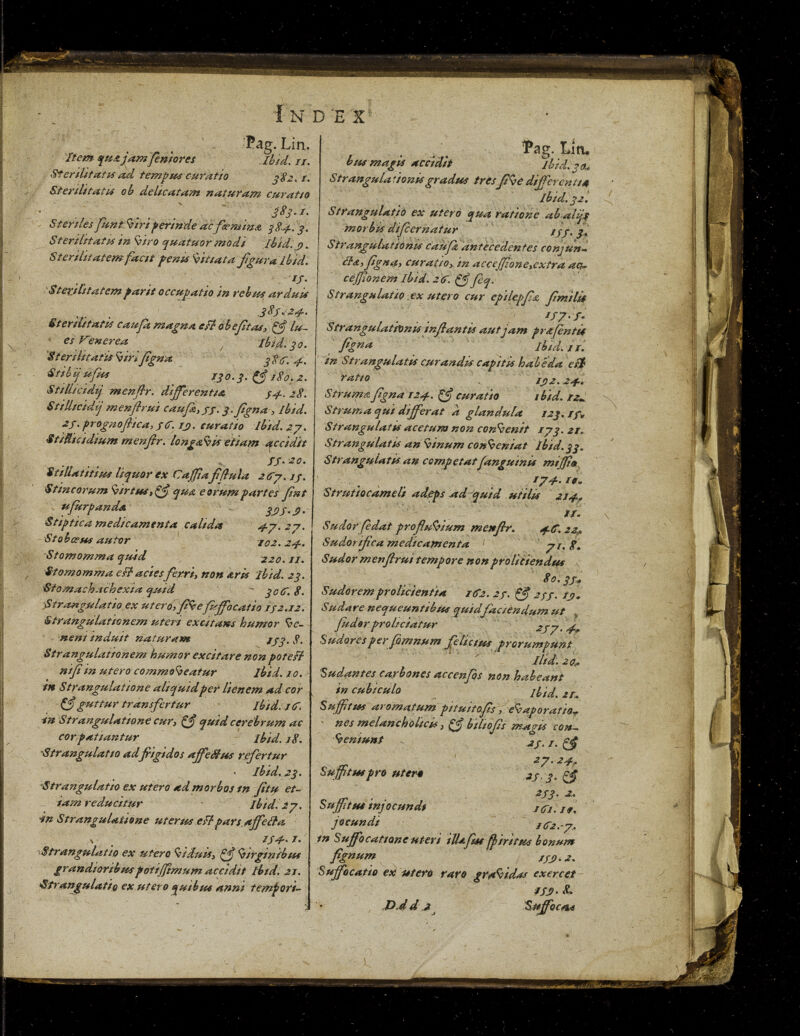 INDEX
Pag. Lin.
Item quæ jam seniores Ibid. 11.
Sterilitatis ad tempus curatio 382. 1.
Sterilitatis ob delicatam naturam curatio
383. 1.
Steriles sunt viri perinde ac fœminæ 384. 3.
Sterilitatis in viro quatuor modi Ibid. 9.
Sterilitatem facit penis vittata figura Ibid.
15.
Sterilitatem parit occupatio in rebus arduis
385. 24.
Sterilitatis causa magna est obesitas, & lu-
es Venerea Ibid. 30.
Sterilitatis viri signa 386. 4.
Stibij usus 130. 3. & 180. 2.
Stillicidij menstr. differentia 54. 28.
Stillicidij menstrui causa, 55. 3. signa, Ibid.
25. prognostica, 56. 19. curatio Ibid. 27.
Stillicidium menstr. longævis etiam accidit
55. 20.
Stillatitius liquor ex Cassia fistula 267. 15.
Stincorum virtus, & quæ eorum partes sint
usurpandæ 395. 9.
Stiptica medicamenta calida 47. 27.
Stobœus autor 102. 24.
Stomomma quid 220. 11.
Stomomma est acies ferri, non æris Ibid. 23.
Stomachachexia quid 306. 8.
Strangulatio ex utero, sive suffocatio 152. 12.
Strangulationem uteri excitans humor ve-
neni induit naturam 153. 8.
Strangulationem humor excitare non potest
nisi in utero commoveatur Ibid. 10.
in Strangulatione aliquid per lienem ad cor
& guttur transfertur Ibid. 16.
in Strangulatione cur, & quid cerebrum ac
cor patiantur Ibid. 18.
Strangulatio ad frigidos affectus refertur
Ibid. 23.
Strangulatio ex utero ad morbos in situ et-
iam reducitur Ibid. 27.
in Strangulatione uterus est pars affecta
154. 1.
Strangulatio ex utero viduis, & virginibus
grandioribus potissimum accidit Ibid. 21.
Strangulatio ex utero quibus anni tempori-
Pag. Lin.
bus magis accidit Ibid. 30.
Strangulationis gradus tres sive differentiæ
Ibid. 32.
Strangulatio ex utero qua ratione ab alijs
morbis discernatur 155. 3.
Strangulationis causæ antecedentes conjun-
ctæ, signa, curatio, in accessione, extra ac-
cessionem Ibid. 26. & seq.
Strangulatio ex utero cur epilepsiæ similis
157. 5.
Strangulationis instantis aut jam præsentis
signa Ibid. 11.
in Strangulatis curandis capitis habeda est
ratio 192. 24.
Struma signa 124. & curatio ibid. 12.
Struma qui differat à glandula 123. 15.
Strangulatis acetum non convenit 173. 21.
Strangulatis an vinum conveniat Ibid. 33.
Strangulatis an competat sanguinis missio
174. 10.
Strutiocameli adeps ad quid utilis 214.
11.
Sudor sedat profluvium menstr. 46. 22.
Sudorifica medicamenta 71. 8.
Sudor menstrui tempore non proliciendus
80. 35.
Sudorem prolicientia 162. 25. & 255. 19.
Sudare nequeuntibus quid faciendum ut
sudor proliciatur 257. 4.
Sudores per somnum felicius prorumpunt
Ibid. 20.
Sudantes carbones accensos non habeant
in cubiculo Ibid. 21.
Suffitus aromatum pituitosis, evaporatio-
nes melancholicis, & biliosis magis con-
veniunt 25. 1. &
27. 24.
Suffitus pro utero 25. 3. &
253. 2.
Suffitus injocundi 161. 10.
jocundi 162. 7.
in Suffocatione uteri illæsus spiritus bonum
signum 159. 2.
Suffocatio ex utero raro gravidas exercet
159. 8.
Ddd 2 Suffocan